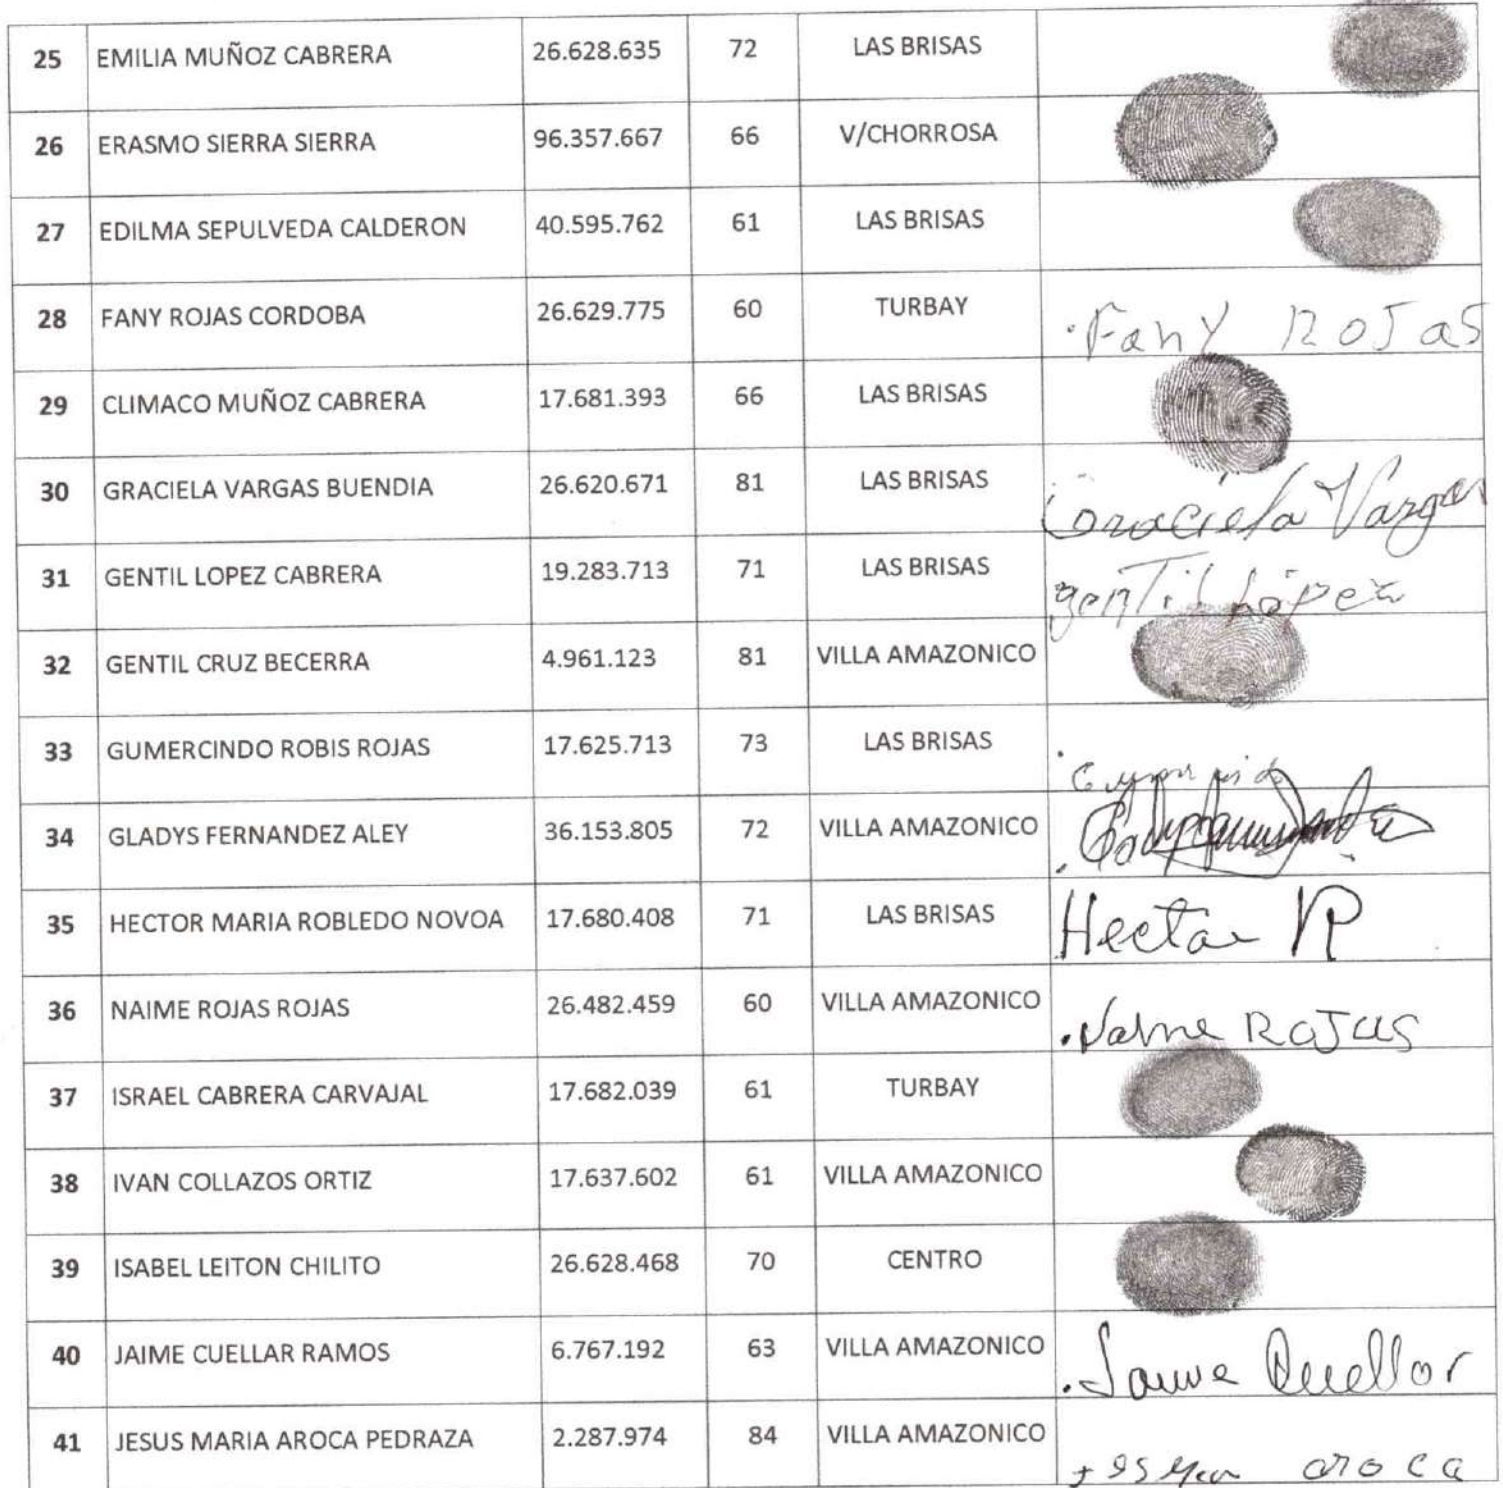 25 EMILIA MUÑOZ CABRERA 26.628.635 72 LAS BRISAS
26 ERASMO SIERRA SIERRA 96.357.667 66 V/CHORROSA
27 EDILMA SEPULVEDA CALDERON 40.595.762 61 LAS BRISAS
28 FANY ROJAS CORDOBA 26.629.775 60 TURBAY Fany ROJas
29 CLIMACO MUÑOZ CABRERA 17.681.393 66 LAS BRISAS
30 GRACIELA VARGAS BUENDIA 26.620.671 81 LAS BRISAS Graciela Vargas
31 GENTIL LOPEZ CABRERA 19.283.713 71 LAS BRISAS genTil López
32 GENTIL CRUZ BECERRA 4.961.123 81 VILLA AMAZONICO
33 GUMERCINDO ROBIS ROJAS 17.625.713 73 LAS BRISAS
34 GLADYS FERNANDEZ ALEY 36.153.805 72 VILLA AMAZONICO
35 HECTOR MARIA ROBLEDO NOVOA 17.680.408 71 LAS BRISAS Hector
36 NAIME ROJAS ROJAS 26.482.459 60 VILLA AMAZONICO Naime ROJas
37 ISRAEL CABRERA CARVAJAL 17.682.039 61 TURBAY
38 IVAN COLLAZOS ORTIZ 17.637.602 61 VILLA AMAZONICO
39 ISABEL LEITON CHILITO 26.628.468 70 CENTRO
40 JAIME CUELLAR RAMOS 6.767.192 63 VILLA AMAZONICO Jaime Cuellar
41 JESUS MARIA AROCA PEDRAZA 2.287.974 84 VILLA AMAZONICO aroca